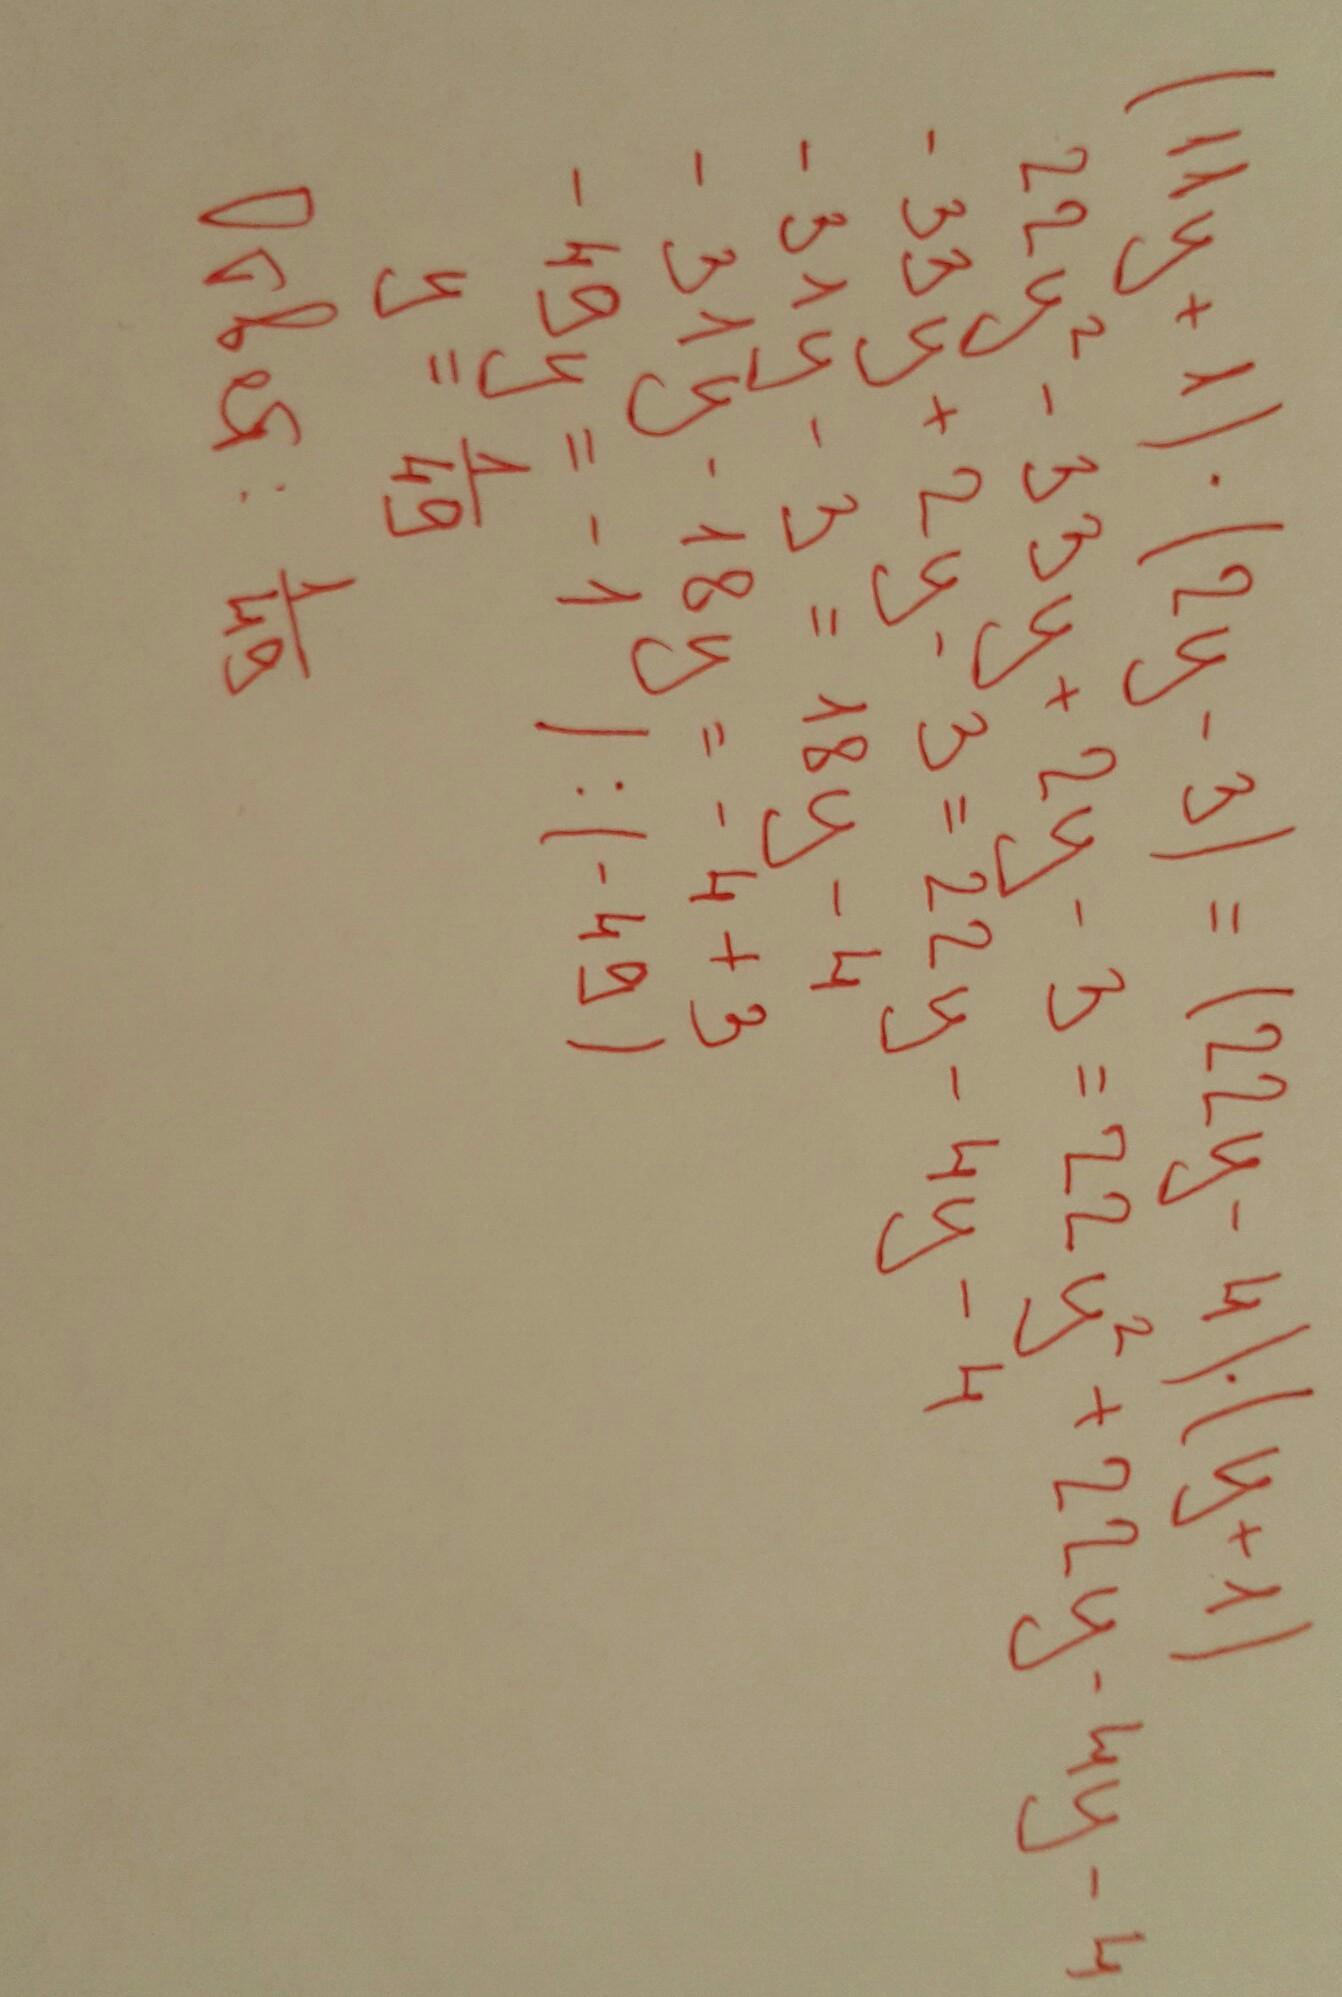 (11y+1)·(2y-3)=(22y-4)·(y+1)
22y²-33y+2y-3=22y²+22y-4y-4
-33y+2y-3=22y-4y-4
-31y-3=18y-4
-31y-18y=-4+3
-49y=-1 |:(-49)
y=1/49
Ответ: 1/49